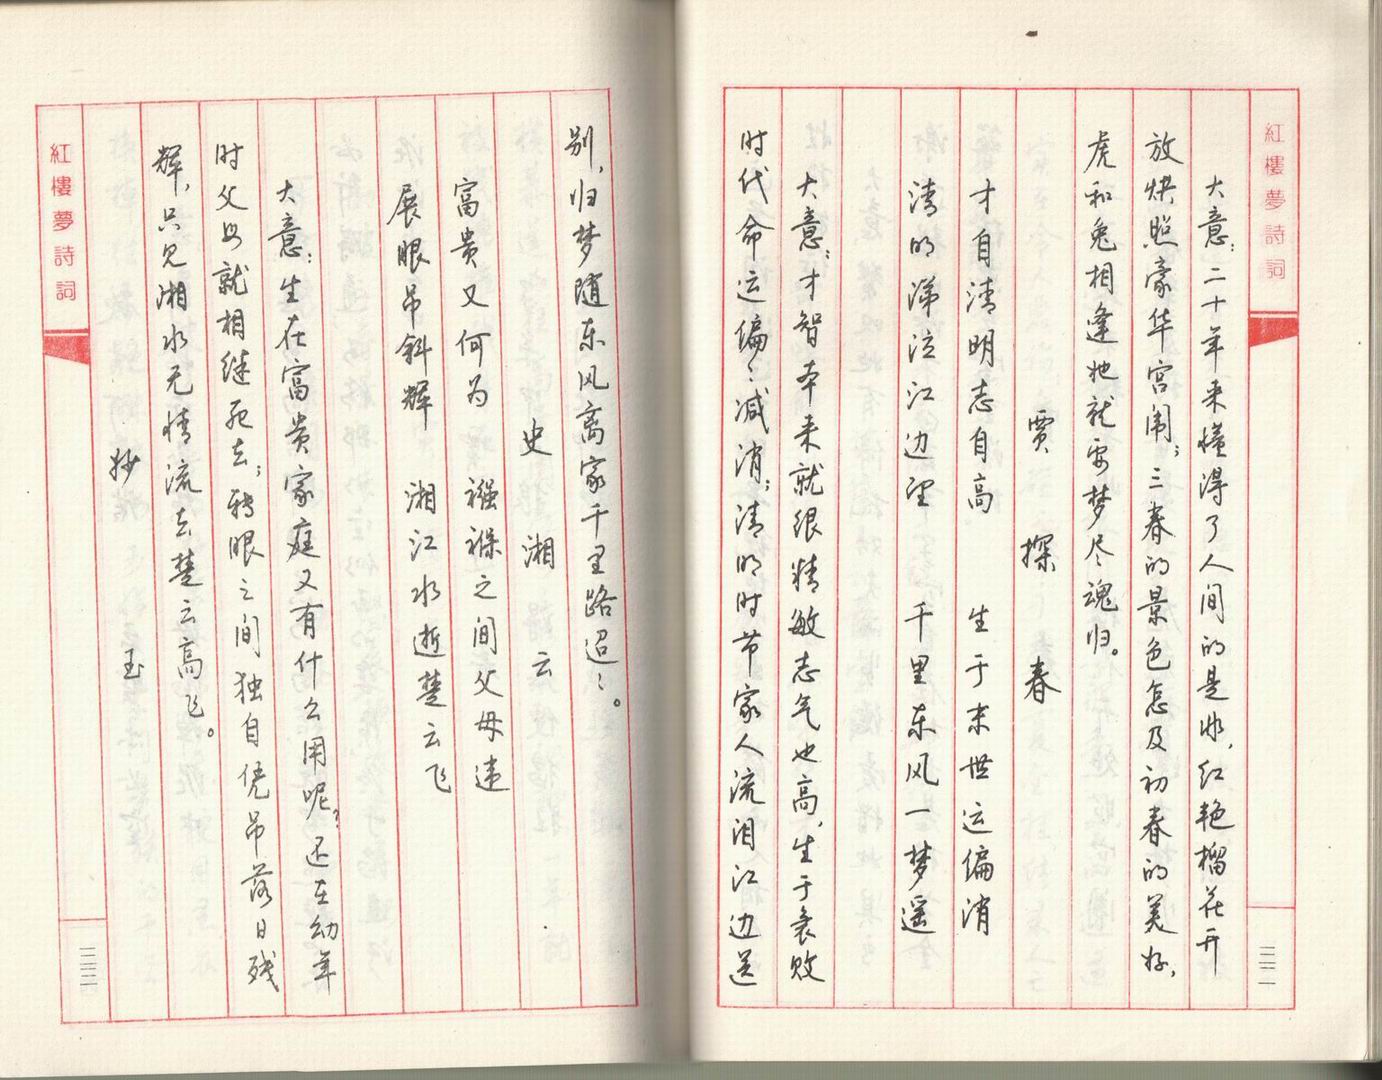 紅樓夢詩詞
大意：二十年来懂得了人间的是非，红艳榴花开
放烘照豪华宫闱；三春的景色怎及初春的美好，
虎和兔相逢她就要梦尽魂归。
贾探春
才自清明志自高 生于末世运偏消
清明涕泣江边望 千里东风一梦遥
大意：才智本来就很精敏志气也高，生于衰败
时代命运偏偏减消；清明时节家人流泪江边送
三二一
别，归梦随东风离家千里路迢迢。
史湘云
富贵又何为 襁褓之间父母违
展眼吊斜辉 湘江水逝楚云飞
大意：生在富贵家庭又有什么用呢？还在幼年
时父母就相继死去；转眼之间独自凭吊落日残
辉，只见湘水无情流去楚云高飞。
妙玉
紅樓夢詩詞
三二二